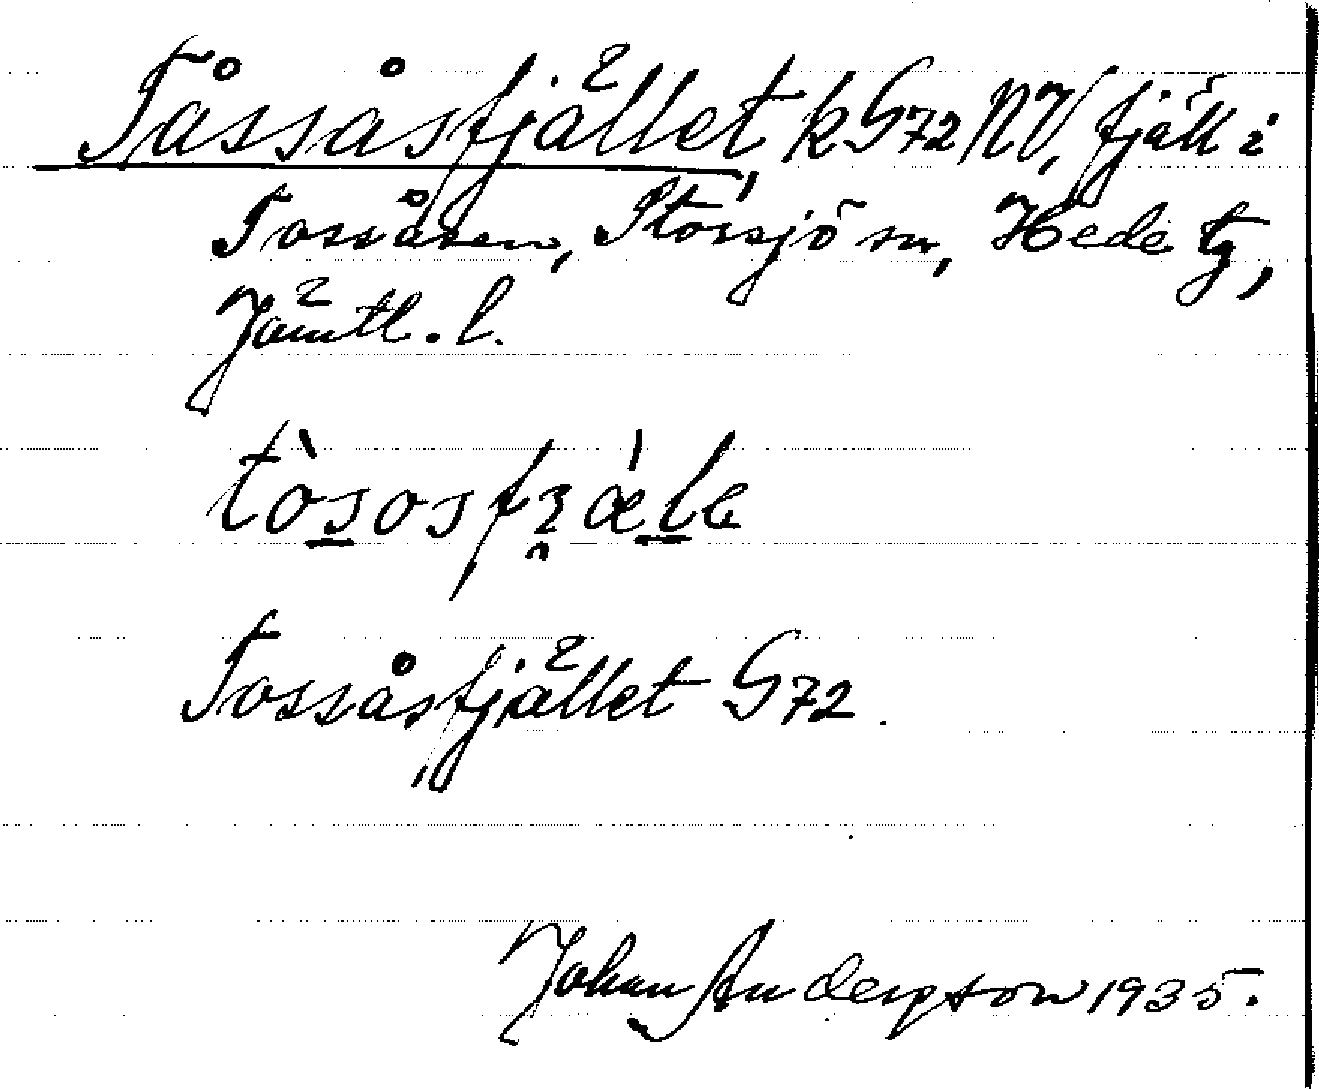 Tåssåsfjället, k G72 NV, fjäll i
Tossåsen, Storsjö sn, Hede tg,
Jämtl. l.
tòsosfȷǽle
Tossåsfjället G72.
Johan Anderson 1935.